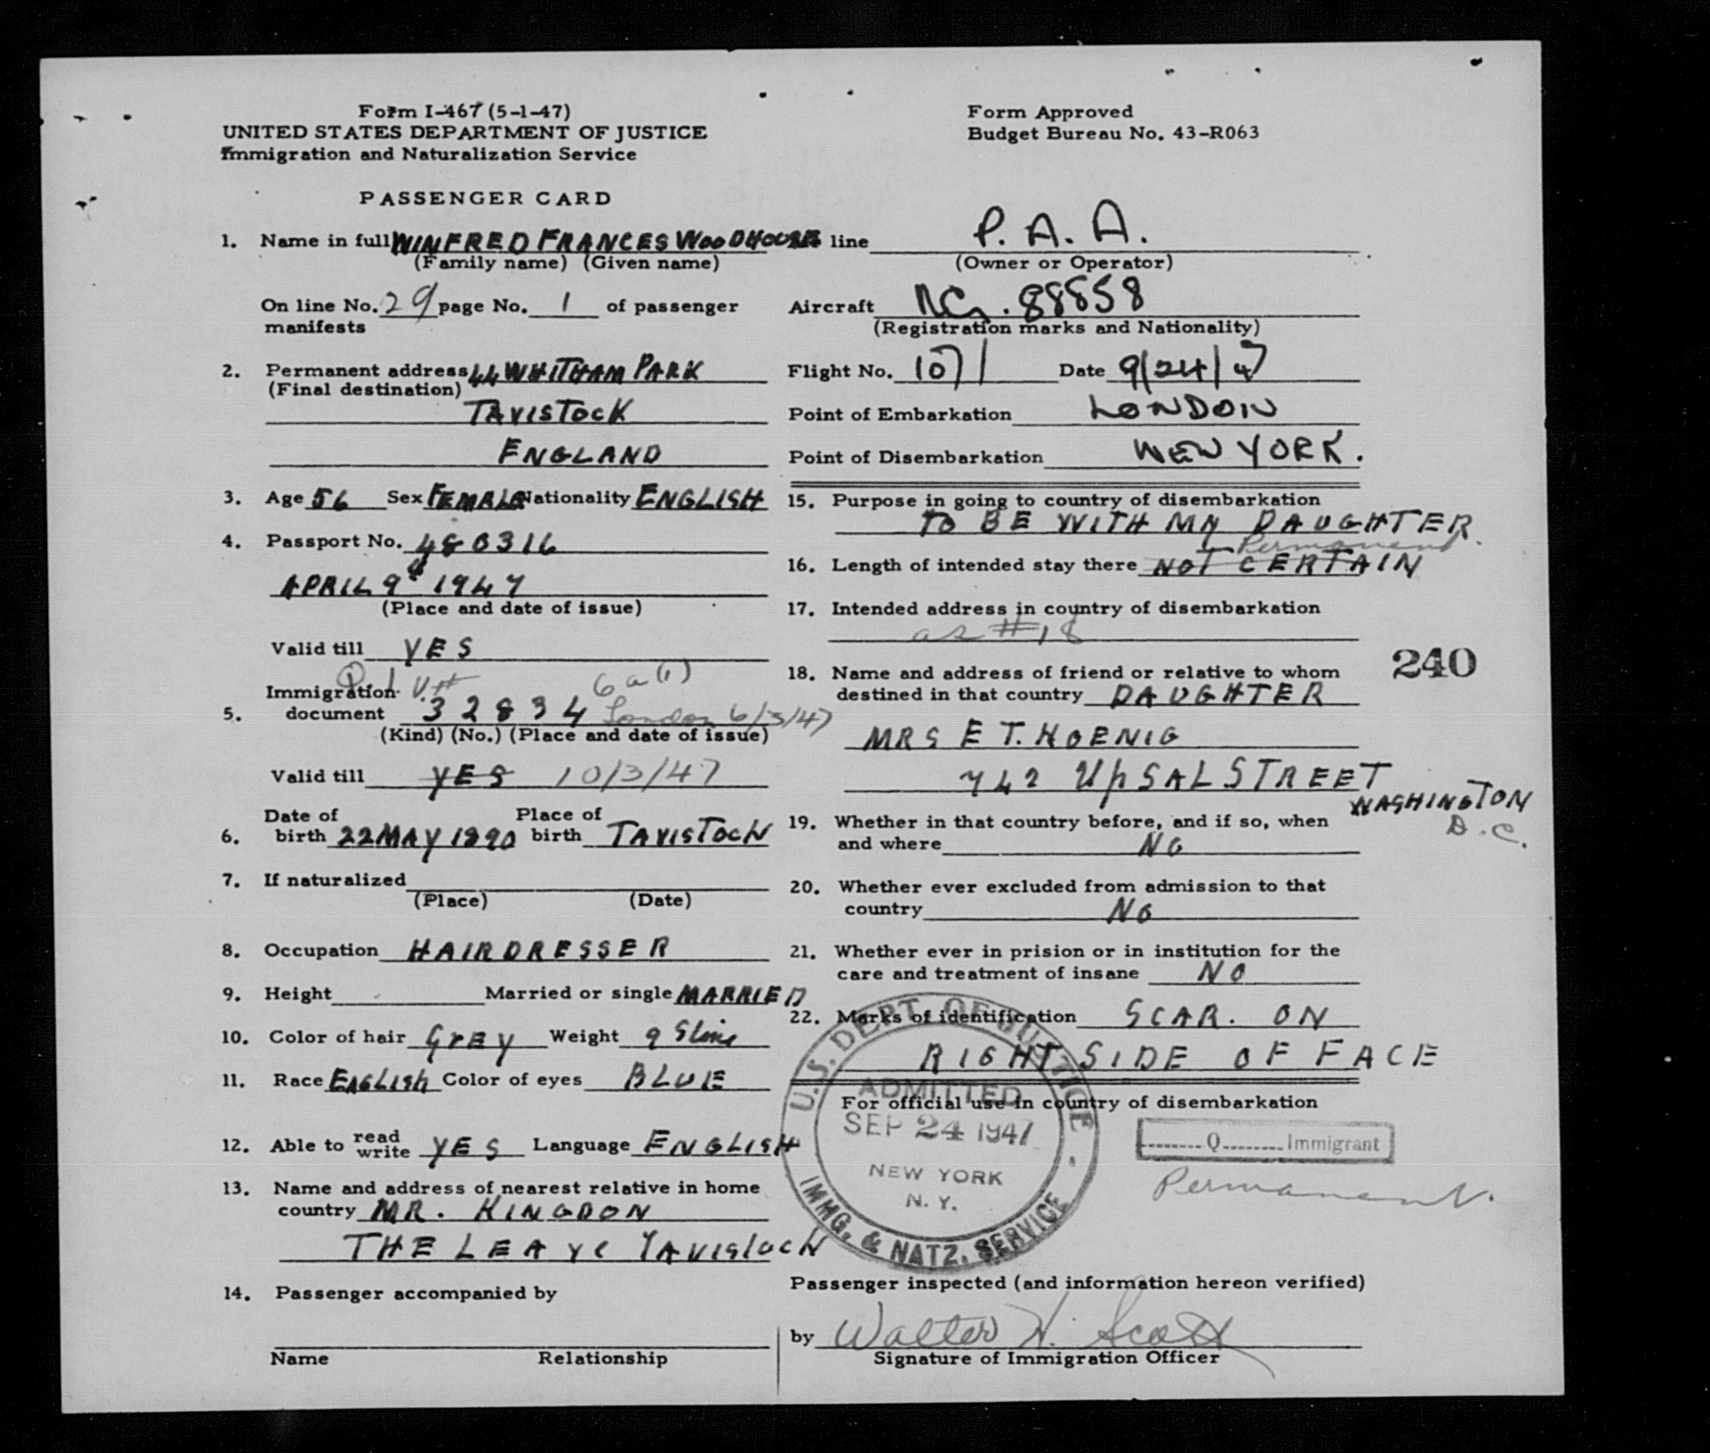 Form I-467 (5-1-47)
UNITED STATES DEPARTMENT OF JUSTICE
Immigration and Naturalization Service
PASSENGER CARD
1. Name in full WINFRED FRANCES WOODHOUSE
(Family name) (Given name)
On line No. 29 page No. 1 of passenger
manifests
2. Permanent address 44 WHITHAM PARK
(Final destination)
TAVISTOCK
ENGLAND
3. Age 56 Sex FEMALE Nationality ENGLISH
4. Passport No. 480316
APRIL 9th 1947
(Place and date of issue)
Valid till YES
Immigration
5. document Q I V.# 32834 6a(1) London 6/3/47
(Kind) (No.) (Place and date of issue)
Valid till YES 10/3/47
6. Date of birth 22 MAY 1890 Place of birth TAVISTOCK
7. If naturalized
(Place) (Date)
8. Occupation HAIRDRESSER
9. Height Married or single MARRIED
10. Color of hair GREY Weight 9 Stone
11. Race ENGLISH Color of eyes BLUE
12. Able to read write YES Language ENGLISH
13. Name and address of nearest relative in home
country MR. KINGDON
THE Tavistock
14. Passenger accompanied by
Name Relationship
Form Approved
Budget Bureau No. 43-R063
line P. A. A.
(Owner or Operator)
Aircraft NC. 88858
(Registration marks and Nationality)
Flight No. 101/1 Date 9/24/47
Point of Embarkation LONDON
Point of Disembarkation NEW YORK.
15. Purpose in going to country of disembarkation
TO BE WITH MY DAUGHTER.
Permanent
16. Length of intended stay there NOT CERTAIN
17. Intended address in country of disembarkation
as #18
240
18. Name and address of friend or relative to whom
destined in that country DAUGHTER
MRS E T. HOENIG
742 UPSAL STREET
WASHINGTON
D.C.
19. Whether in that country before, and if so, when
and where NO
20. Whether ever excluded from admission to that
country NO
21. Whether ever in prision or in institution for the
care and treatment of insane NO
22. Marks of identification SCAR. ON
RIGHT SIDE OF FACE
For official use in country of disembarkation
U.S. DEPT. OF JUSTICE
ADMITTED
SEP 24 1947
NEW YORK
N. Y.
IMMG. & NATZ. SERVICE
Q Immigrant
Permanent.
Passenger inspected (and information hereon verified)
by Walter H. Scott
Signature of Immigration Officer